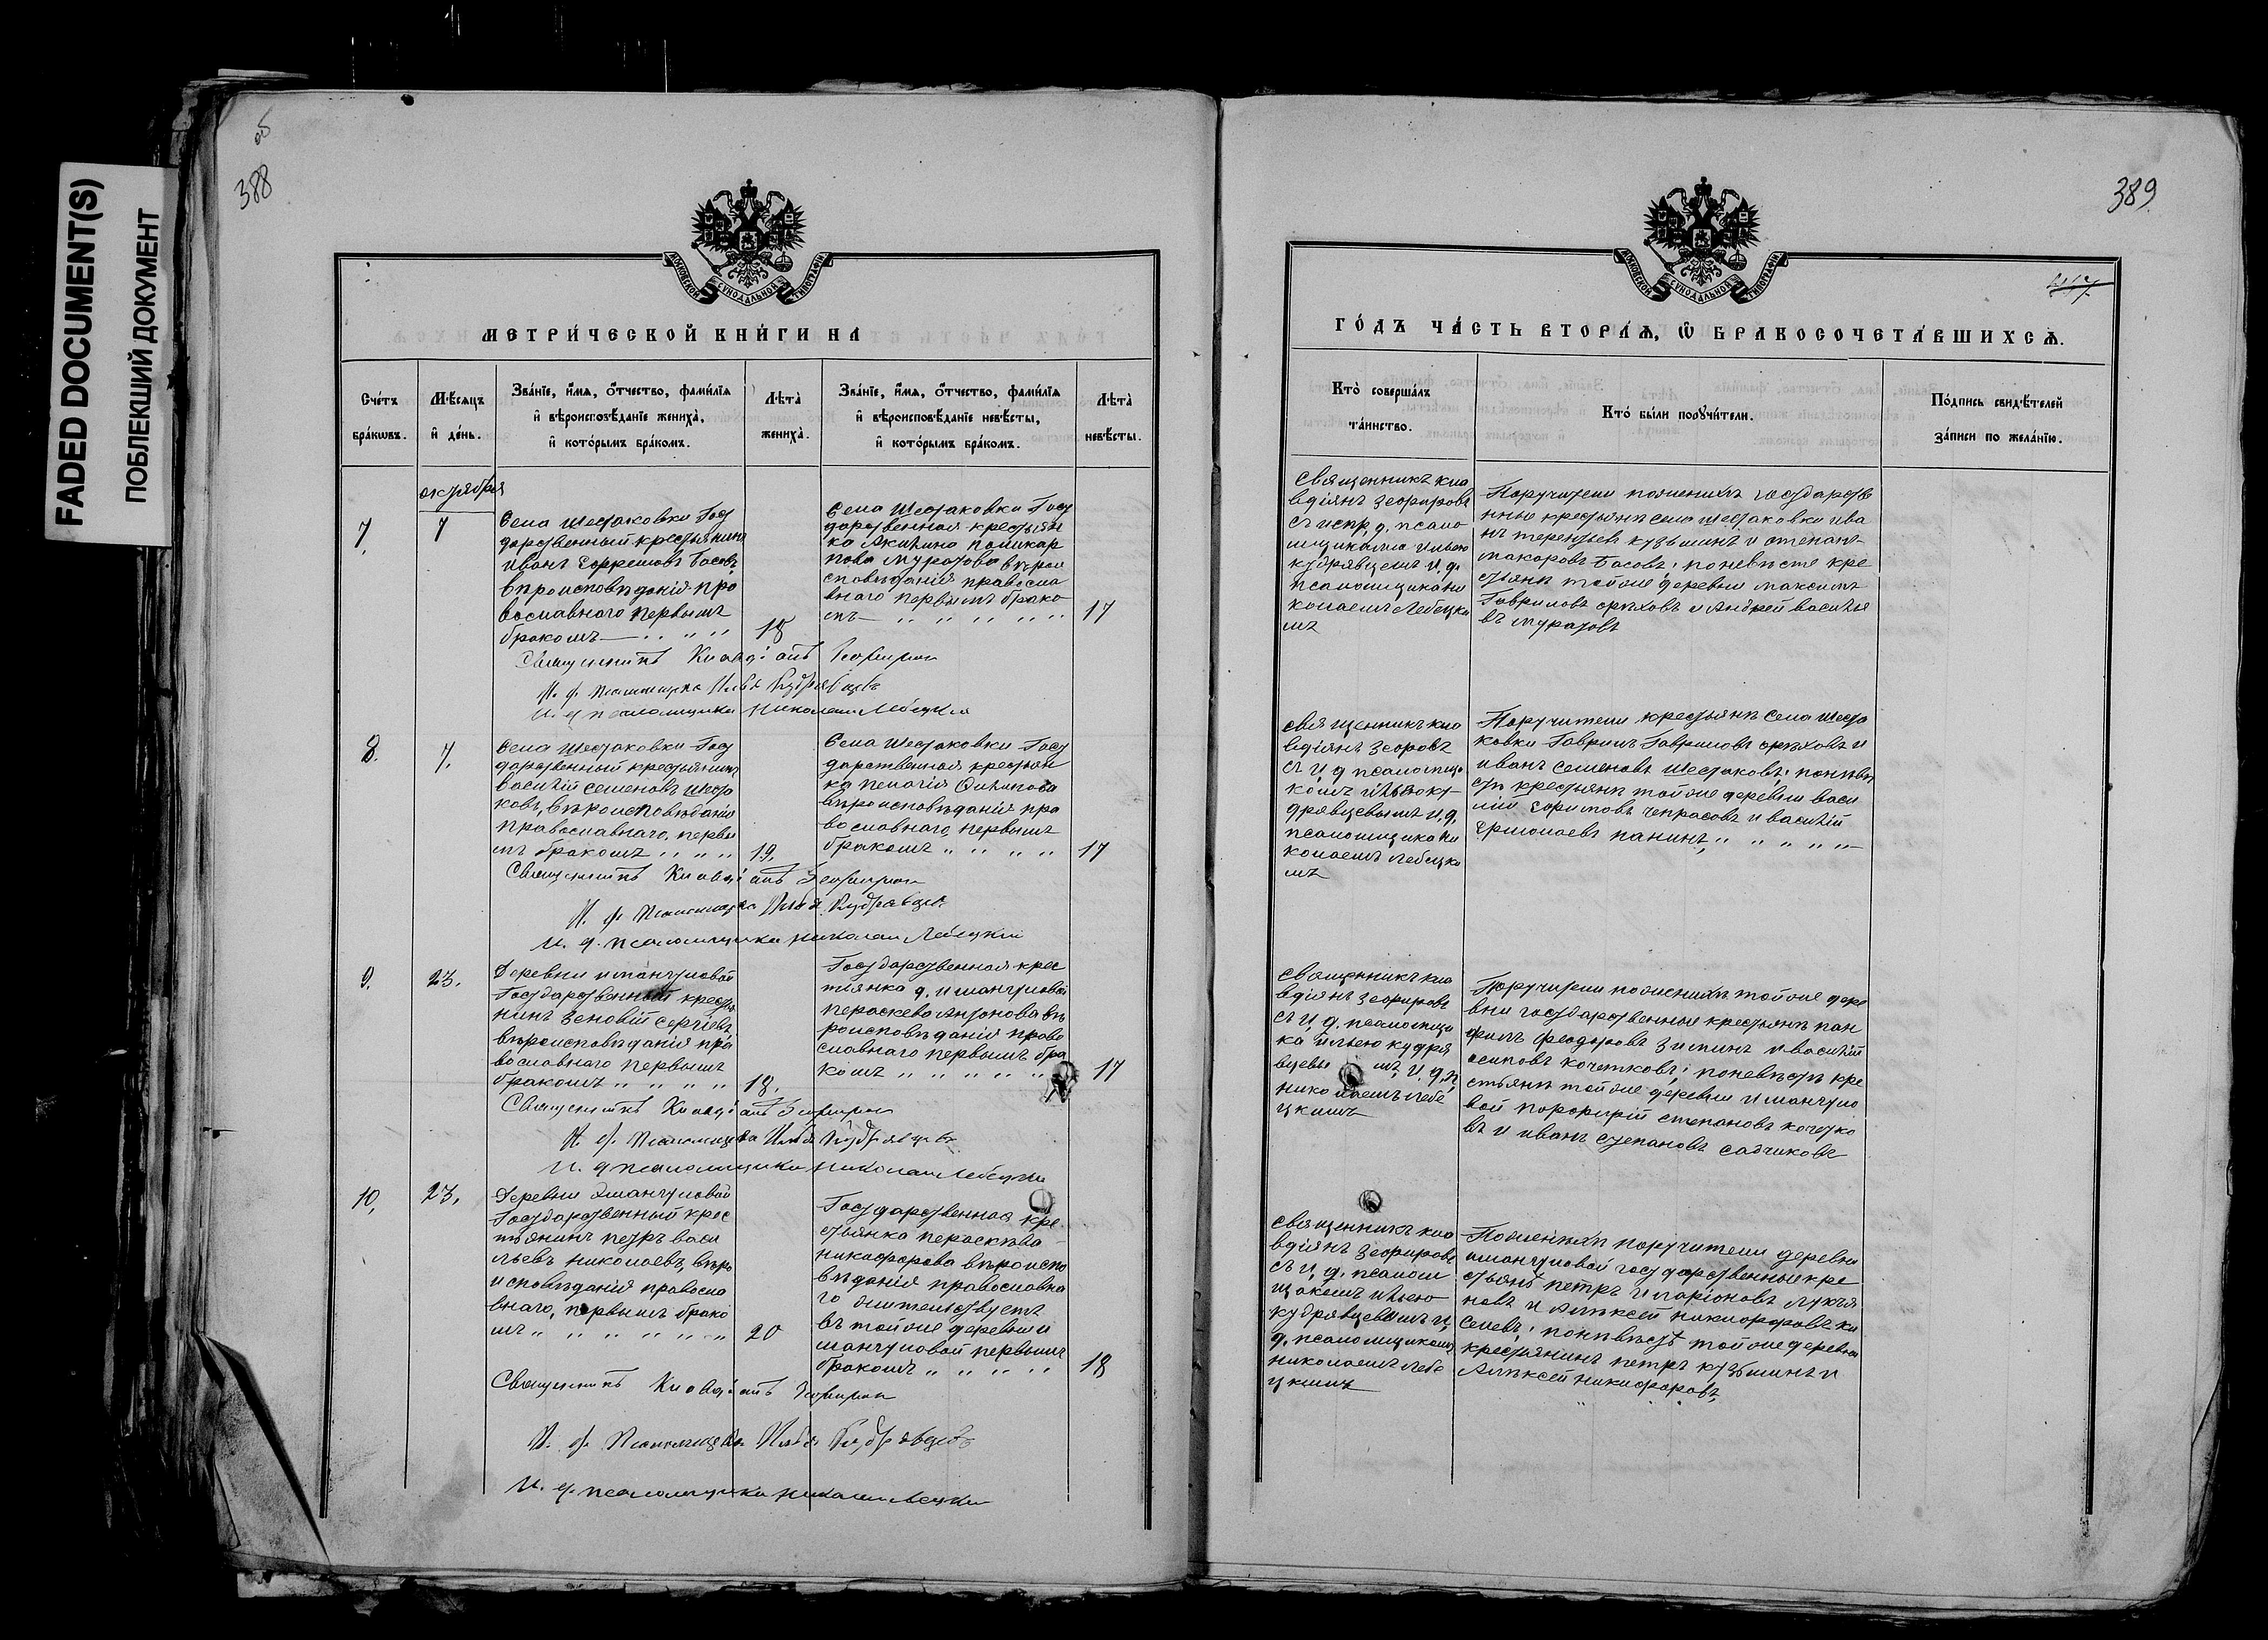 FADED DOCUMENT(S)
ПОБЛЕКШИЙ ДОКУМЕНТ
об
388
МОСКОВСКОЙ СѴНОДАЛЬНОЙ ТИПОГРАФІИ
МЕТРИ́ЧЕСКОЙ КНИ́ГИ НА
Сче́тъ бра́кωвъ.
М҄ѣсяцъ и҆ де́нь.
Зва́нїе, и҆́мѧ, ѻ҆́тчество, фами́лїѧ и҆ вѣроисповѣ́данїе жениха̀, и҆ кото́рымъ бра́комъ.
Лѣта̀ жениха̀.
Зва́нїе, и҆́мѧ, ѻ҆́тчество, фами́лїѧ и҆ вѣроисповѣ́данїе невѣ́сты, и҆ кото́рымъ бра́комъ.
Лѣта̀ невѣ́сты.
октября
7.
7
Села Шестаковки Госу
дарственный крестьянинъ
Иванъ Ефремовъ Басовъ,
вѣроисповѣданія пра
вославнаго первымъ
бракомъ
18
Села Шестаковки Госу
дарственная крестьян
ка Акилина Поликар
пова Муратова вѣрои
сповѣданія правосла
внаго первымъ брако
мъ
17
Священникъ Клавдіанъ Зефировъ
И. д. Псаломщика Илья Кудрявцевъ
И. д. псаломщика Николай Лебецкій
8.
7.
Села Шестаковки Госу
дарственный крестьянинъ
Василій Семеновъ Шеста
ковъ, вѣроисповѣданія
православнаго, первы
мъ бракомъ
19.
Села Шестаковки Госу
дарственная крестьян
ка Пелагія Филипова
вѣроисповѣданія пра
вославнаго, первымъ
бракомъ
17
Священникъ Клавдіанъ Зефировъ
И. д. Псаломщика Илья Кудрявцевъ
И. д. псаломщика Николай Лебецкій
9.
23.
Деревни Имангуловой
Государственный крестья
нинъ Зеновій Сергіевъ,
вѣроисповѣданія пра
вославнаго первымъ
бракомъ
18.
Государственная крес
тьянка д. Имангуловой
Пераскева Антонова вѣ
роисповѣданія право
славнаго первымъ бра
комъ
17
Священникъ Клавдіанъ Зефировъ
И. д. Псаломщика Илья Кудрявцевъ
И. д. псаломщика Николай Лебецкій
10.
23.
Деревни Имангуловой
Государственный крес
тьянинъ Петръ Васи
льевъ Николаевъ, вѣро
исповѣданія правосла
внаго, первымъ брако
мъ
20
Государственная кре
стьянка Пераскѣва
Никифорова вѣроиспо
вѣданія православна
го жительствуетъ
въ той же деревни И
мангуловой первымъ
бракомъ
18
Священникъ Клавдіанъ Зефировъ
И. д. Псаломщика Илья Кудрявцевъ
И. д. псаломщика Николай
389.
МОСКОВСКОЙ СѴНОДАЛЬНОЙ ТИПОГРАФІИ
ГО́ДЪ ЧА́СТЬ ВТОРА́Ѧ, Ѽ БРАКОСОЧЕТА́ВШИХСѦ.
Кто̀ соверша́лъ та́инство.
Кто̀ бы́ли порꙋчи́тели.
По́дпись свид҄ѣтелей за́писи по жела́нїю.
Священникъ Кла
вдіянъ Зефировъ
съ испр. д. псало
мщикама Ильею
Кудрявцемъ и. д.
псаломщика Ни
колаемъ Лебецки
мъ
Поручители по женихѣ государстве
нные крестьянѣ села Шестаковки Ива
нъ Терентьевъ Кузьминъ и Степанъ
Макаровъ Басовъ; по невѣсте кре
стьянѣ той же деревни Максимъ
Гавриловъ Орѣховъ и Андрей Василье
въ Муратовъ
Священникъ Кла
вдіянъ
съ и. д. псаломщи
комъ Ильею Ку
дрявцевымъ и. д.
псаломщика Ни
колаемъ Лебецки
мъ
Поручители крестьянѣ села Шеста
ковки Гаврилъ Гавриловъ Орѣховъ и
Иванъ Семеновъ Шестаковъ; по невѣ
стѣ крестьянѣ той же деревни Васи
лій Ефимовъ Чепрасовъ и Василій
Ермолаевъ Панинъ
Священникъ Кла
вдіянъ Зефировъ
съ и. д. псаломщи
ка Ильею Кудря
вцевы мъ и. д. п.
Николаемъ Лебе
цкимъ
Поручители по женихѣ той же дере
вни государственные крестьянѣ Пан
филъ Феодоровъ Зиминъ и Василій
Осиповъ Кочетковъ; по невѣстѣ кре
стьянѣ той же деревни Имангуло
вой Порфирій Степановъ Кочетко
въ и Иванъ Степановъ Садчиковъ
Священникъ Кла
вдіянъ Зефировъ
съ и. д. псалом
щикомъ Ильею
Кудрявцевымъ и.
д. псаломщикомъ
Николаемъ Лебе
цкимъ
По женихѣ поручители деревни
Имангуловой государственные кре
стьянѣ Петръ Иларіоновъ Лукья
новъ и Алѣксей Никифоровъ Ки
селевъ; по невѣстѣ той же деревни
крестьянинъ Петръ Кузьминъ и
Алѣксей Никифоровъ